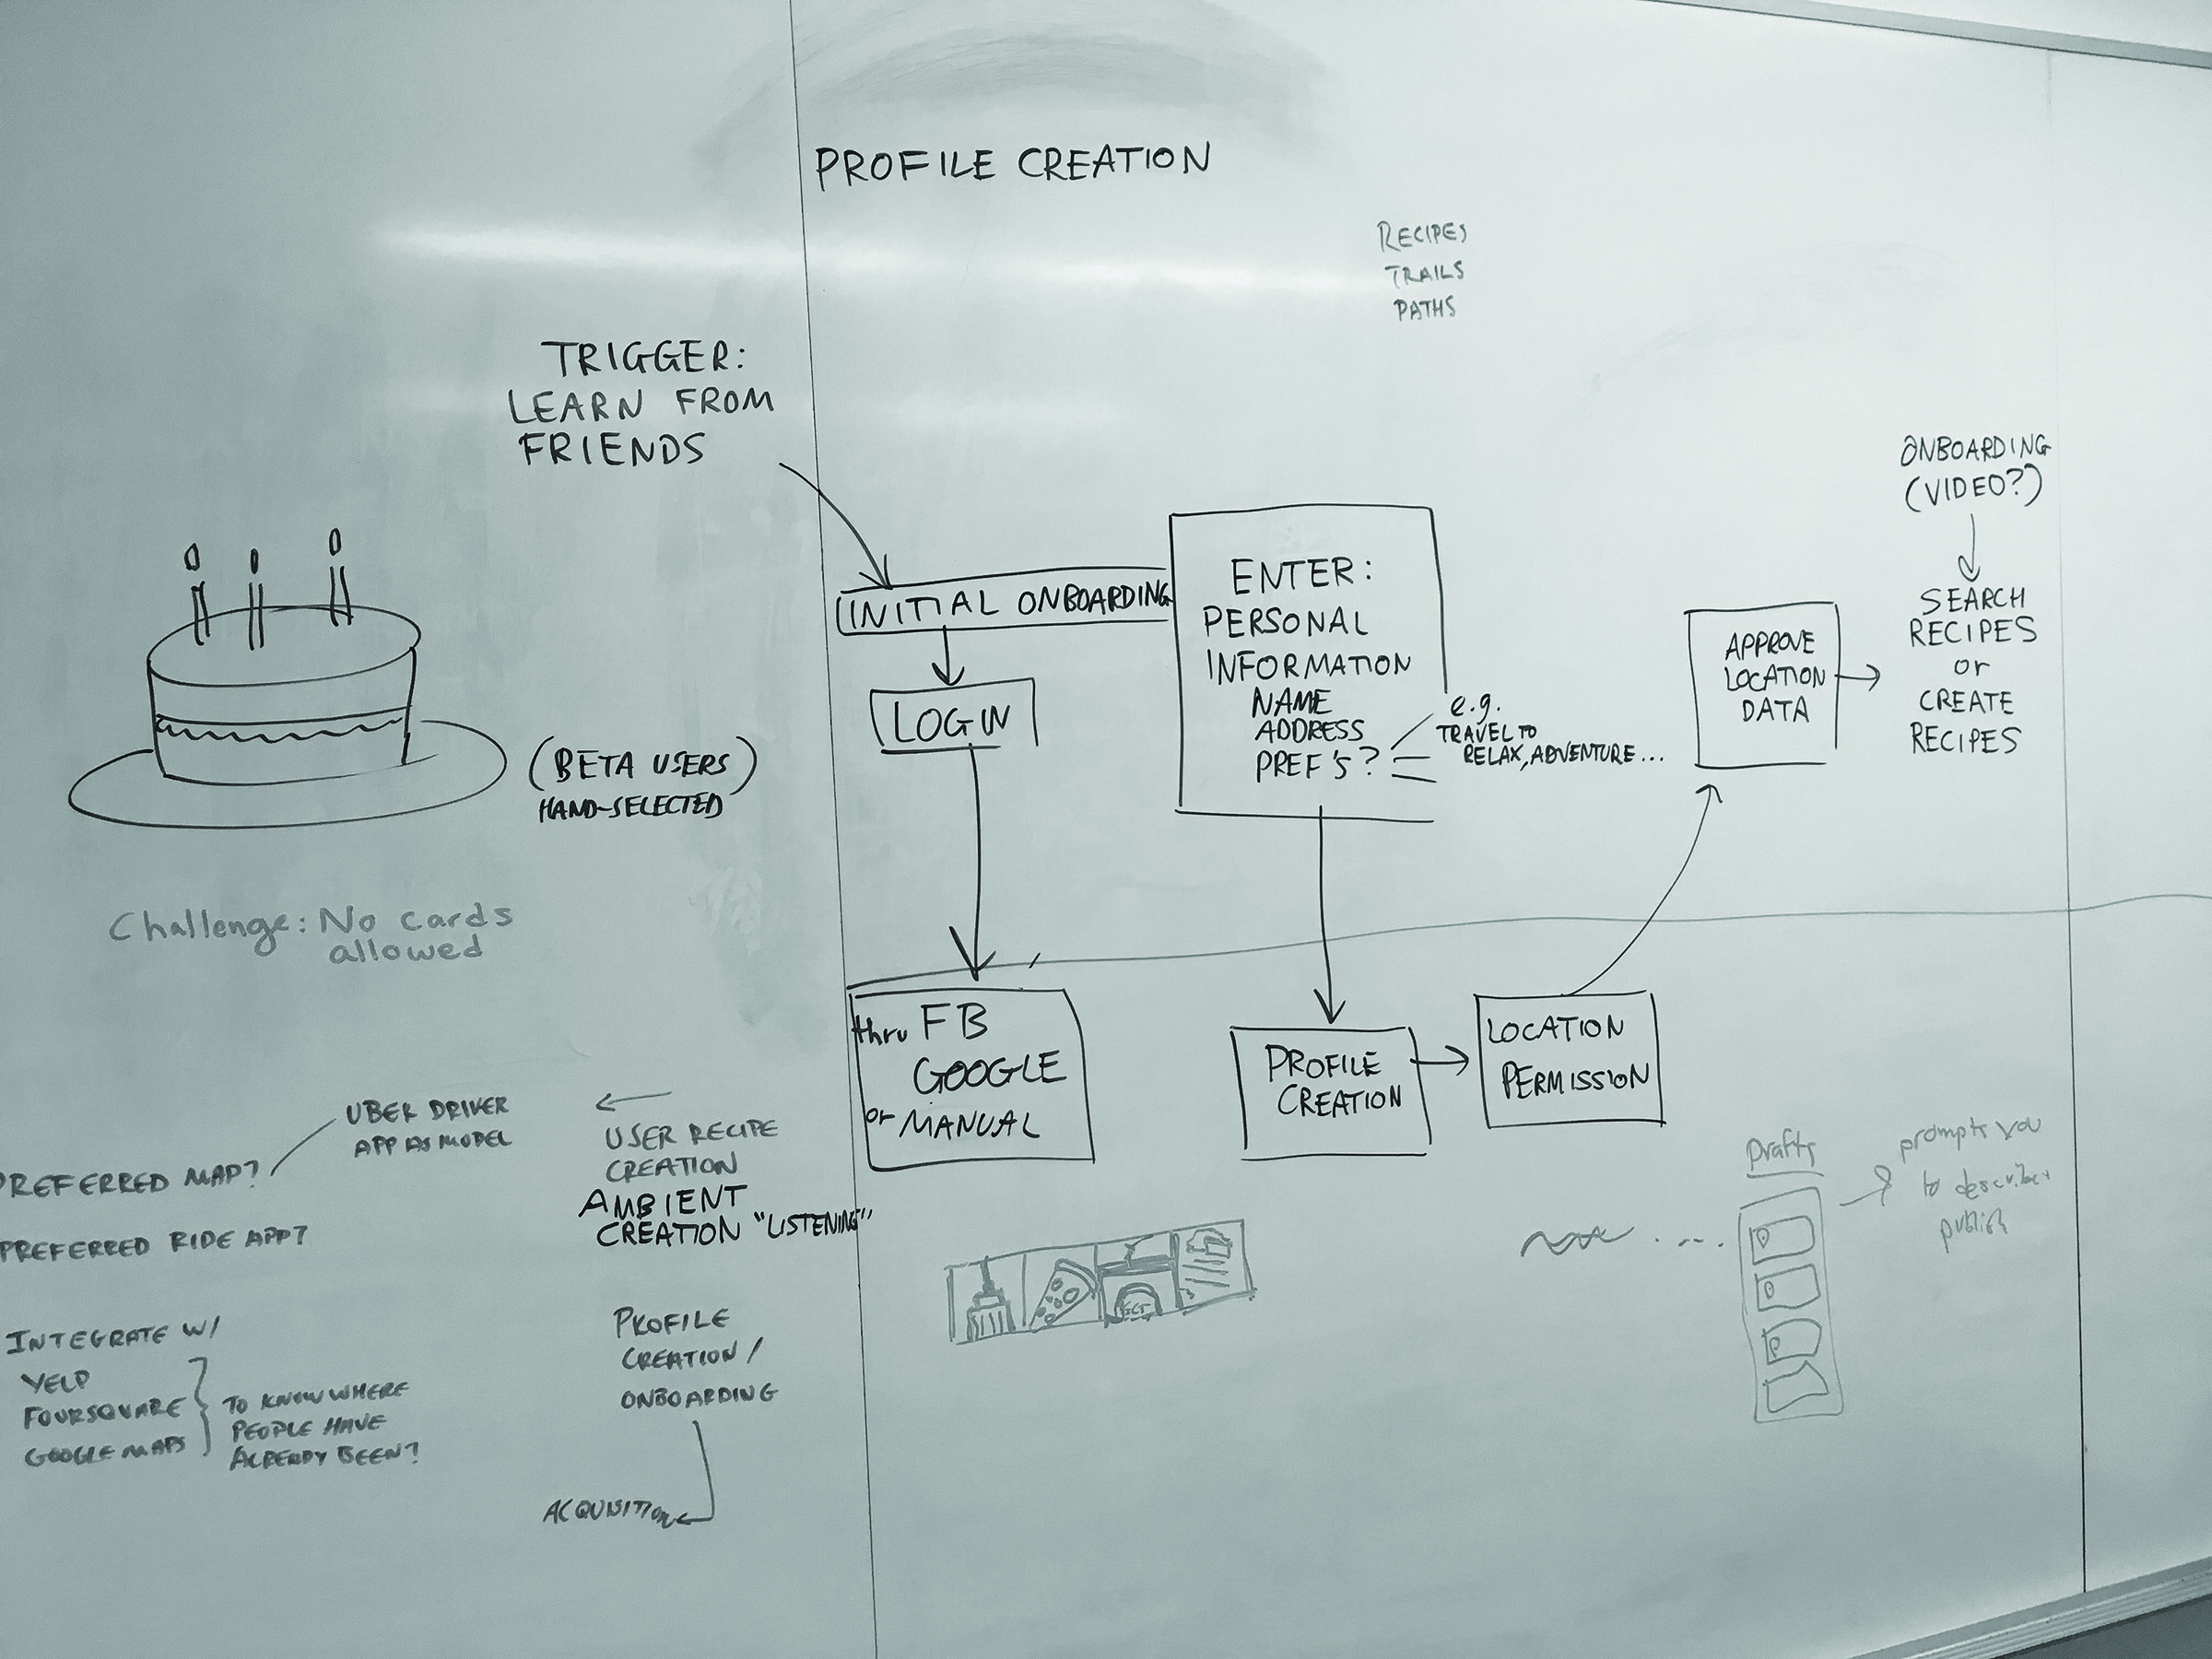 PROFILE CREATION
RECIPES
TRAILS
PATHS
TRIGGER:
LEARN FROM
FRIENDS
(BETA USERS)
HAND-SELECTED
Challenge: No cards
allowed
INITIAL ONBOARDING
LOGIN
thru FB
GOOGLE
or MANUAL
ENTER:
PERSONAL
INFORMATION
NAME
ADDRESS
PREF'S?
e.g.
TRAVEL TO
RELAX, ADVENTURE...
PROFILE
CREATION
LOCATION
PERMISSION
APPROVE
LOCATION
DATA
ONBOARDING
(VIDEO?)
SEARCH
RECIPES
or
CREATE
RECIPES
UBER DRIVER
APP AS MODEL
PREFERRED MAP?
PREFERRED RIDE APP?
INTEGRATE W/
YELP
FOURSQUARE
GOOGLE MAPS
TO KNOW WHERE
PEOPLE HAVE
ALREADY BEEN?
USER RECIPE
CREATION
AMBIENT
CREATION "LISTENING"
PROFILE
CREATION/
ONBOARDING
ACQUISITION
Drafts
prompts you
to describe +
publish